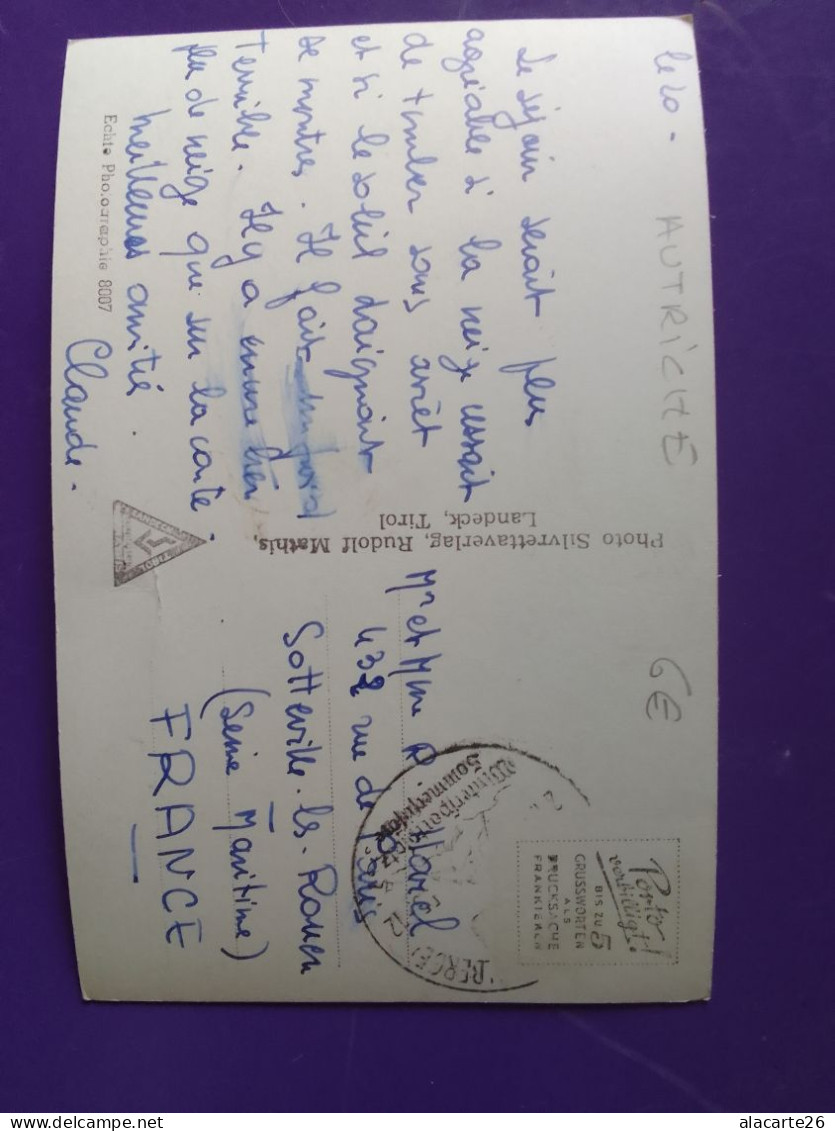 le 20 -
AUTRICHE
Le séjour serait plus
agréable si la neige cessait
de tomber sans arrêt
et si le soleil daignait
se montrer. Il fait un froid
terrible. Il y a encore bien
plus de neige que sur la carte.
Meilleures amitiés.
Claude.
Echte Photographie 8007
Photo Silvrettaverlag, Rudolf Mathis,
Landeck, Tirol
6€
Porto
verbilligt!
BIS ZU 5
GRUSSWORTEN
ALS
DRUCKSACHE
FRANKIEREN
Wintersport
Sommer
Mr et Mme R. Harel
432 rue de Paris
Sotteville-les-Rouen
(Seine Maritime)
FRANCE
alacarte26